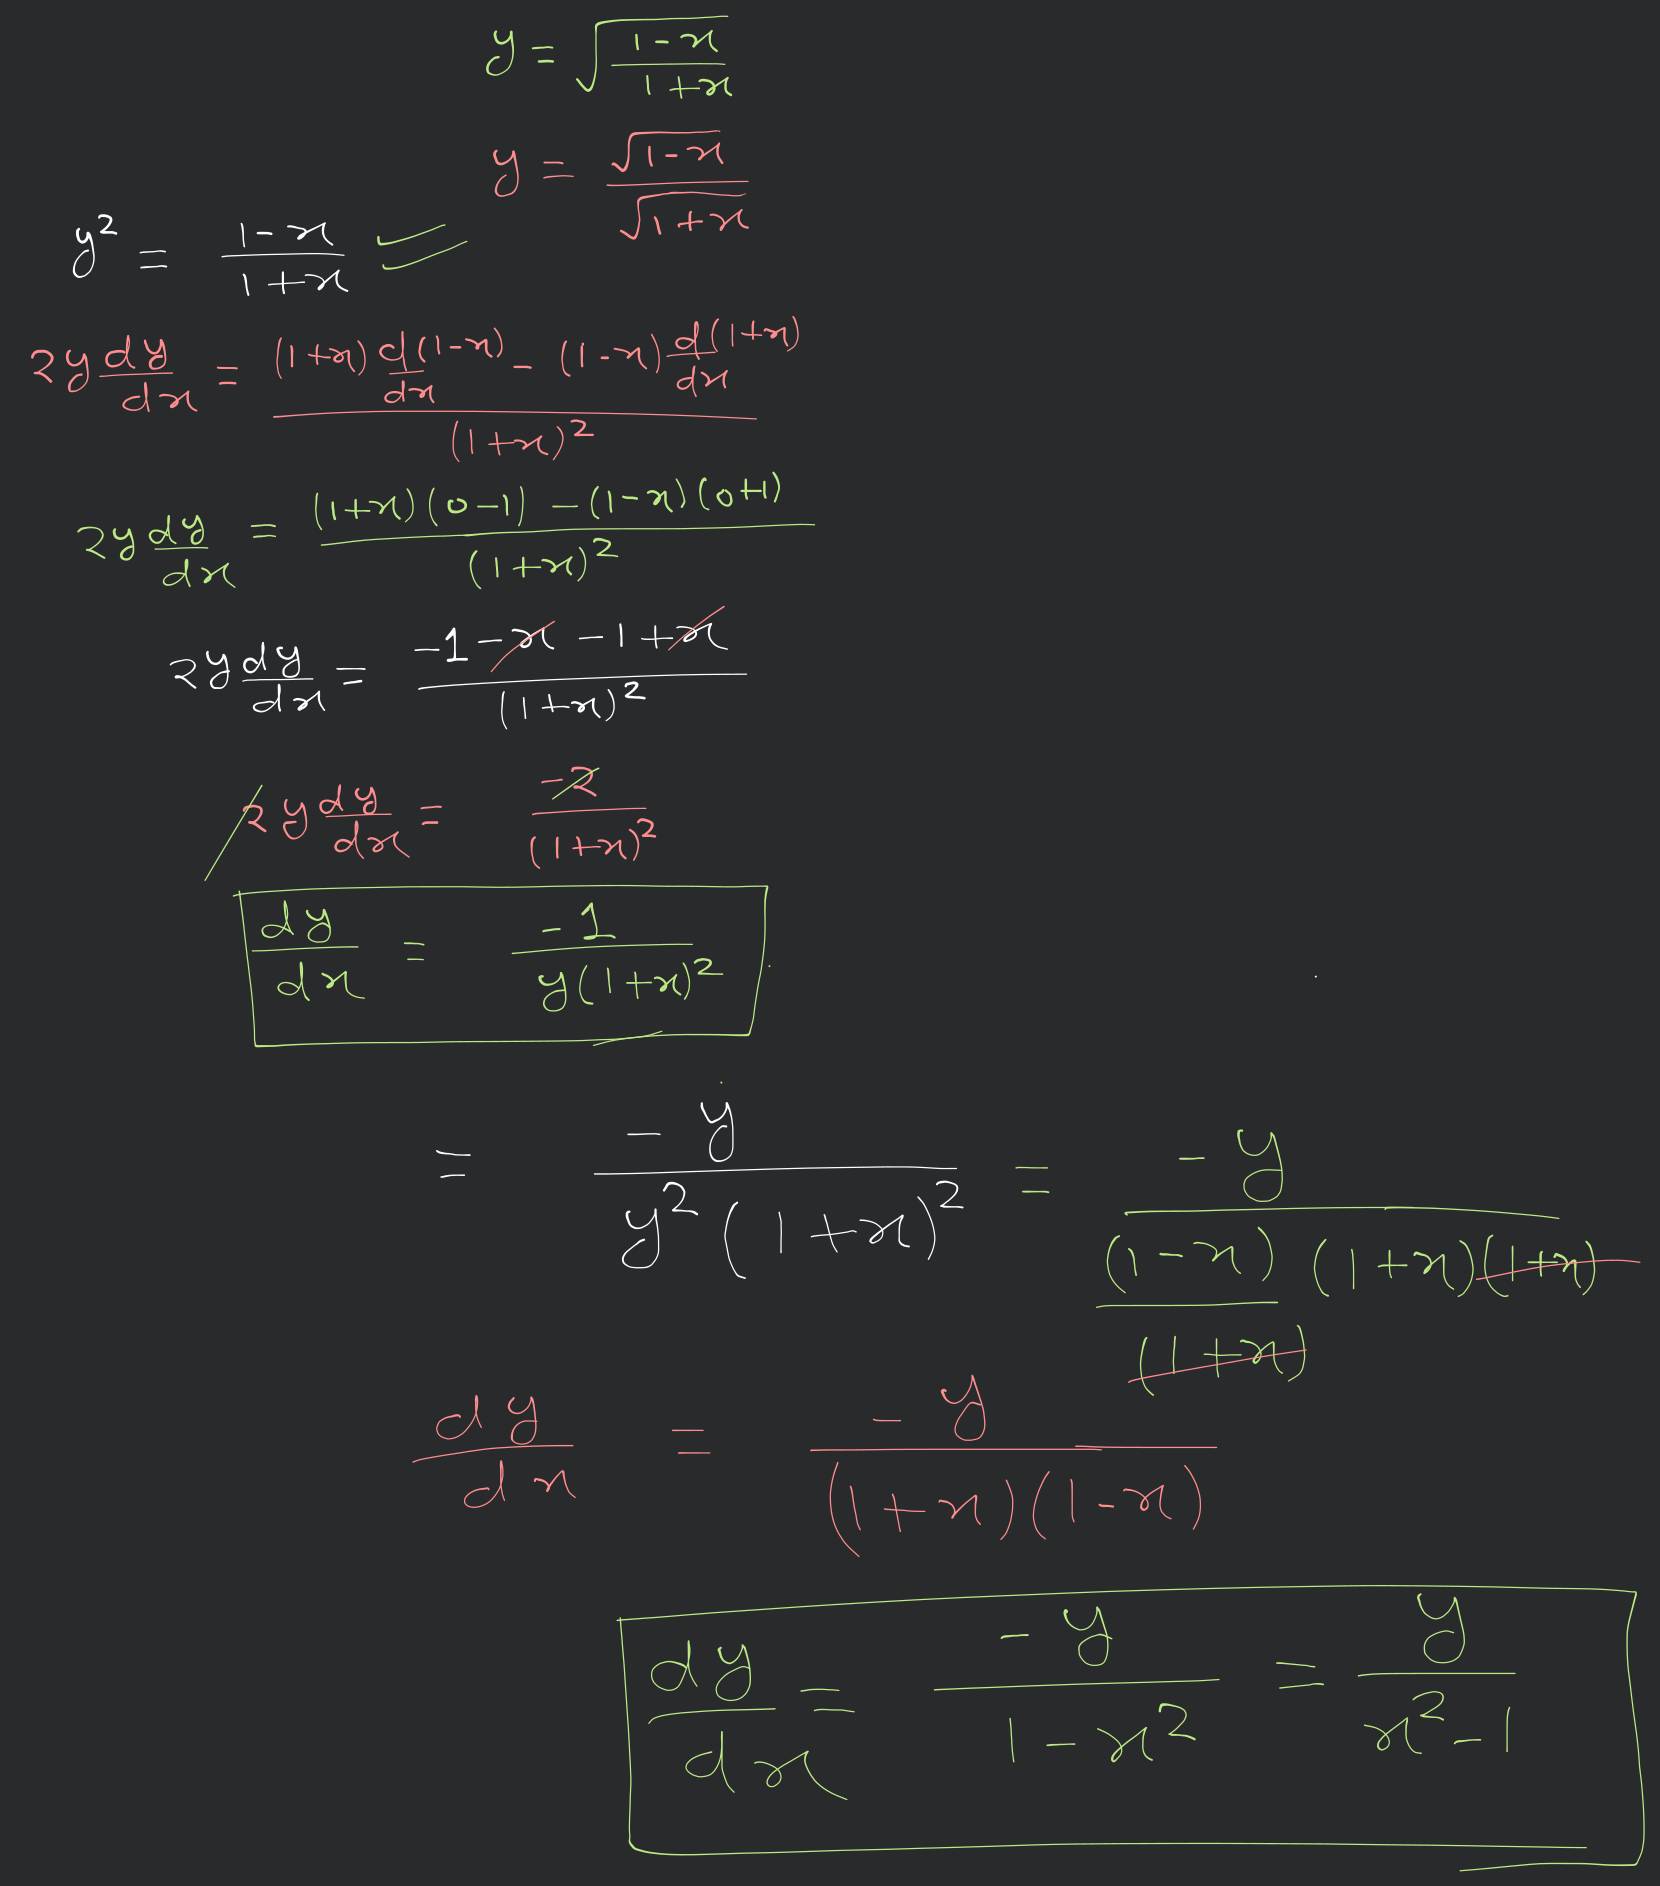 y = √((1-x)/(1+x))
y = √(1-x)/√(1+x)
y² = (1-x)/(1+x)
2y dy/dx = ((1+x) d(1-x)/dx - (1-x) d(1+x)/dx)/(1+x)²
2y dy/dx = ((1+x)(0-1) - (1-x)(0+1))/(1+x)²
2y dy/dx = (-1-x-1+x)/(1+x)²
2y dy/dx = -2/(1+x)²
dy/dx = -1/(y(1+x)²)
= -y/(y²(1+x)²) = -y/(((1-x)/(1+x))(1+x)(1+x))
dy/dx = -y/((1+x)(1-x))
dy/dx = -y/(1-x²) = y/(x²-1)